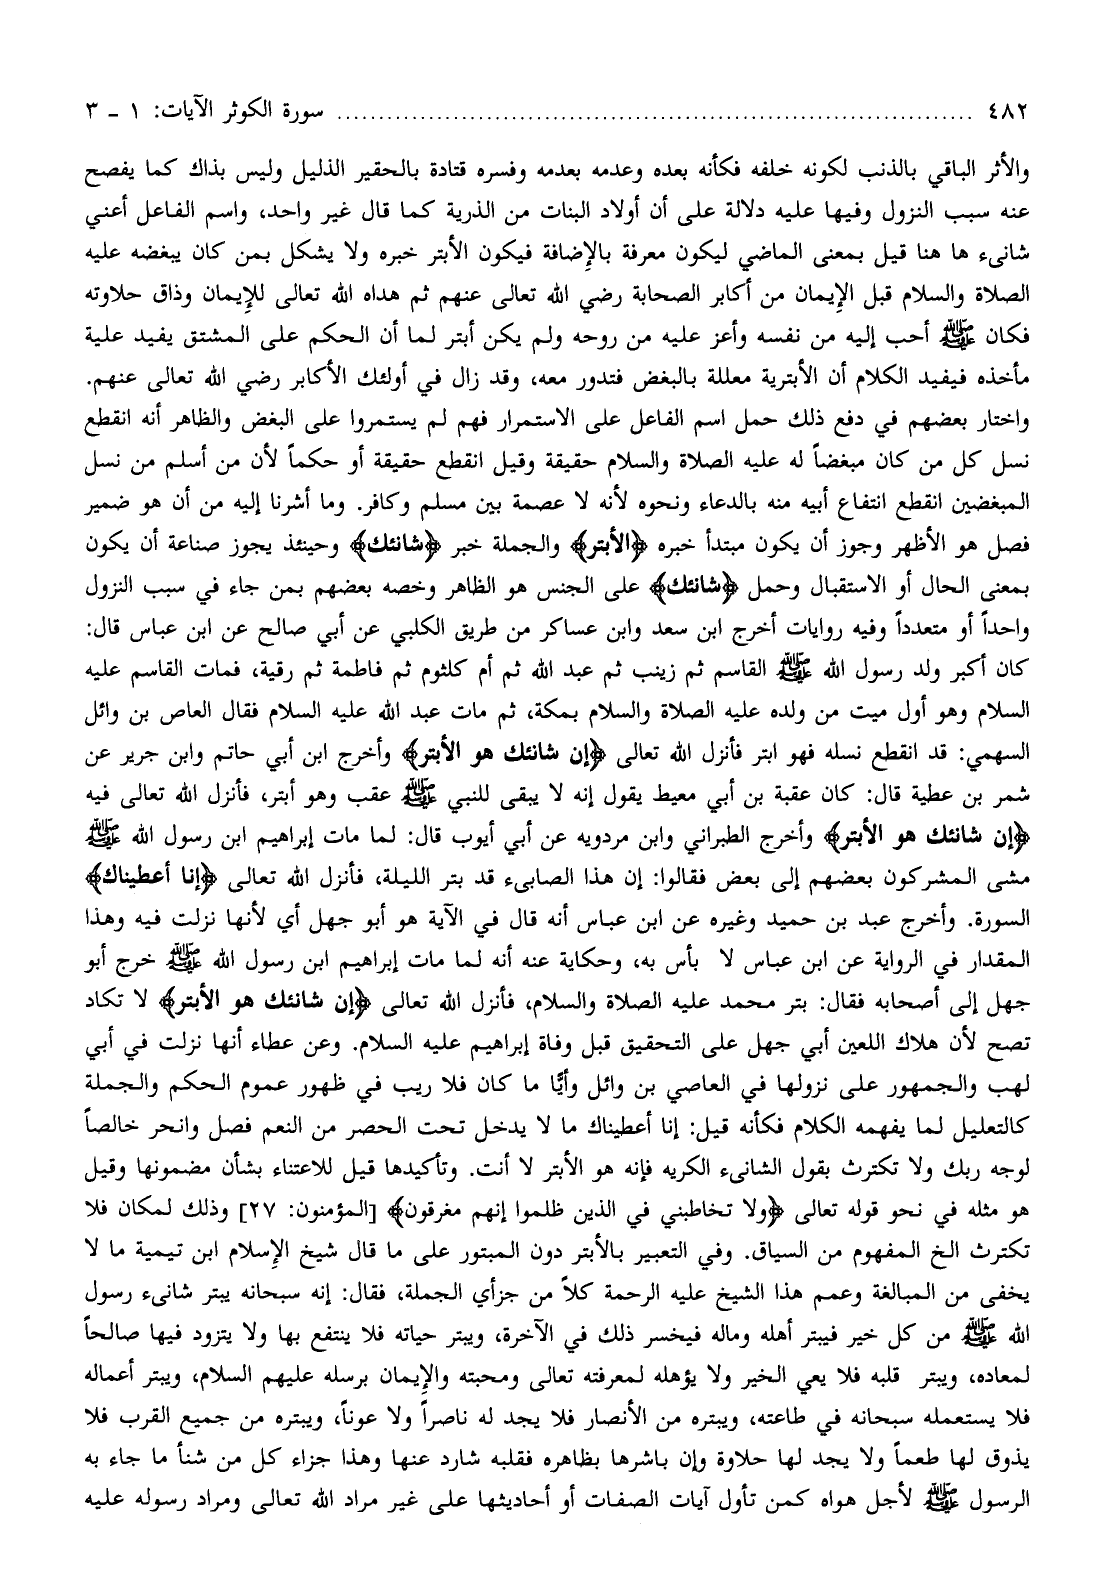 ٤٨٢ ........................................................................ سورة الكوثر الآيات: ١ - ٣
والأثر الباقي بالذنب لكونه خلفه فكأنه بعده وعدمه بعدمه وفسره قتادة بالحقير الذليل وليس بذاك كما يفصح
عنه سبب النزول وفيها عليه دلالة على أن أولاد البنات من الذرية كما قال غير واحد، واسم الفاعل أعني
شانىء ها هنا قيل بمعنى الماضي ليكون معرفة بالإضافة فيكون الأبتر خبره ولا يشكل بمن كان يبغضه عليه
الصلاة والسلام قبل الإيمان من أكابر الصحابة رضي الله تعالى عنهم ثم هداه الله تعالى للإيمان وذاق حلاوته
فكان ﷺ أحب إليه من نفسه وأعز عليه من روحه ولم يكن أبتر لما أن الحكم على المشتق يفيد علية
مأخذه فيفيد الكلام أن الأبترية معللة بالبغض فتدور معه، وقد زال في أولئك الأكابر رضي الله تعالى عنهم.
واختار بعضهم في دفع ذلك حمل اسم الفاعل على الاستمرار فهم لم يستمروا على البغض والظاهر أنه انقطع
نسل كل من كان مبغضاً له عليه الصلاة والسلام حقيقة وقيل انقطع حقيقة أو حكماً لأن من أسلم من نسل
المبغضين انقطع انتفاع أبيه منه بالدعاء ونحوه لأنه لا عصمة بين مسلم وكافر. وما أشرنا إليه من أن هو ضمير
فصل هو الأظهر وجوز أن يكون مبتدأ خبره ﴿الأبتر﴾ والجملة خبر ﴿شانئك﴾ وحينئذ يجوز صناعة أن يكون
بمعنى الحال أو الاستقبال وحمل ﴿شانئك﴾ على الجنس هو الظاهر وخصه بعضهم بمن جاء في سبب النزول
واحداً أو متعدداً وفيه روايات أخرج ابن سعد وابن عساكر من طريق الكلبي عن أبي صالح عن ابن عباس قال:
كان أكبر ولد رسول الله ﷺ القاسم ثم زينب ثم عبد الله ثم أم كلثوم ثم فاطمة ثم رقية، فمات القاسم عليه
السلام وهو أول ميت من ولده عليه الصلاة والسلام بمكة، ثم مات عبد الله عليه السلام فقال العاص بن وائل
السهمي: قد انقطع نسله فهو ابتر فأنزل الله تعالى ﴿إن شانئك هو الأبتر﴾ وأخرج ابن أبي حاتم وابن جرير عن
شمر بن عطية قال: كان عقبة بن أبي معيط يقول إنه لا يبقى للنبي ﷺ عقب وهو أبتر، فأنزل الله تعالى فيه
﴿إن شانئك هو الأبتر﴾ وأخرج الطبراني وابن مردويه عن أبي أيوب قال: لما مات إبراهيم ابن رسول الله ﷺ
مشى المشركون بعضهم إلى بعض فقالوا: إن هذا الصابىء قد بتر الليلة، فأنزل الله تعالى ﴿إنا أعطيناك﴾
السورة. وأخرج عبد بن حميد وغيره عن ابن عباس أنه قال في الآية هو أبو جهل أي لأنها نزلت فيه وهذا
المقدار في الرواية عن ابن عباس لا بأس به، وحكاية عنه أنه لما مات إبراهيم ابن رسول الله ﷺ خرج أبو
جهل إلى أصحابه فقال: بتر محمد عليه الصلاة والسلام، فأنزل الله تعالى ﴿إن شانئك هو الأبتر﴾ لا تكاد
تصح لأن هلاك اللعين أبي جهل على التحقيق قبل وفاة إبراهيم عليه السلام. وعن عطاء أنها نزلت في أبي
لهب والجمهور على نزولها في العاصي بن وائل وأيًّا ما كان فلا ريب في ظهور عموم الحكم والجملة
كالتعليل لما يفهمه الكلام فكأنه قيل: إنا أعطيناك ما لا يدخل تحت الحصر من النعم فصل وانحر خالصاً
لوجه ربك ولا تكترث بقول الشانىء الكريه فإنه هو الأبتر لا أنت. وتأكيدها قيل للاعتناء بشأن مضمونها وقيل
هو مثله في نحو قوله تعالى ﴿ولا تخاطبني في الذين ظلموا إنهم مغرقون﴾ [المؤمنون: ٢٧] وذلك لمكان فلا
تكترث الخ المفهوم من السياق. وفي التعبير بالأبتر دون المبتور على ما قال شيخ الإسلام ابن تيمية ما لا
يخفى من المبالغة وعمم هذا الشيخ عليه الرحمة كلاً من جزأي الجملة، فقال: إنه سبحانه يبتر شانىء رسول
الله ﷺ من كل خير فيبتر أهله وماله فيخسر ذلك في الآخرة، ويبتر حياته فلا ينتفع بها ولا يتزود فيها صالحاً
لمعاده، ويبتر قلبه فلا يعي الخير ولا يؤهله لمعرفته تعالى ومحبته والإيمان برسله عليهم السلام، ويبتر أعماله
فلا يستعمله سبحانه في طاعته، ويبتره من الأنصار فلا يجد له ناصراً ولا عوناً، ويبتره من جميع القرب فلا
يذوق لها طعماً ولا يجد لها حلاوة وإن باشرها بظاهره فقلبه شارد عنها وهذا جزاء كل من شنأ ما جاء به
الرسول ﷺ لأجل هواه كمن تأول آيات الصفات أو أحاديثها على غير مراد الله تعالى ومراد رسوله عليه